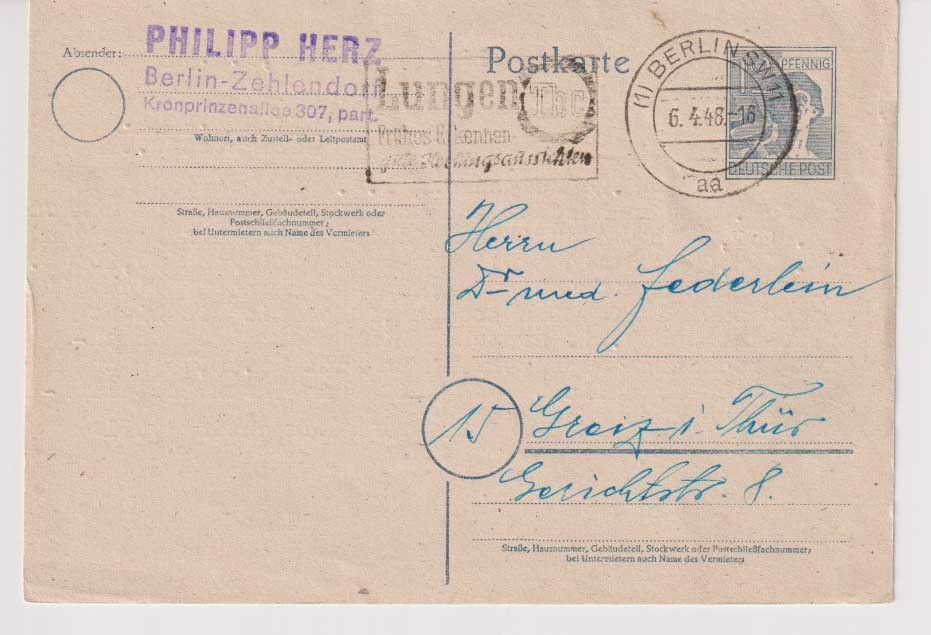 Absender:
PHILIPP HERZ
Berlin-Zehlendorf
Kronprinzenallee 307, part.
Wohnort, auch Zustell- oder Leitpostamt
Straße, Hausnummer, Gebäudeteil, Stockwerk oder
Postschließfachnummer;
bei Untermietern auch Name des Vermieters
Postkarte
Lungen Tbc
Frühes Erkennen
gute Heilungsaussichten
(1) BERLIN SW 11
6.4.48.-18
aa
PFENNIG
DEUTSCHE POST
Herrn
Dr med. Federlein
15 Greiz i. Thür
Gerichtstr. 8.
Straße, Hausnummer, Gebäudeteil, Stockwerk oder Postschließfachnummer;
bei Untermietern auch Name des Vermieters